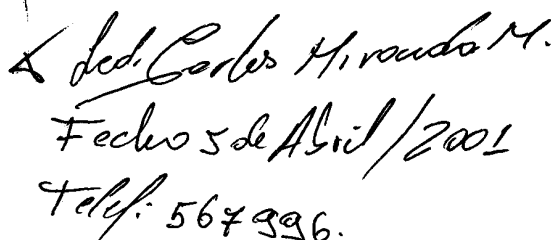 Lcd. Carlos Miranda M.
Fecha 5 de Abril/2001
Telf: 567996.